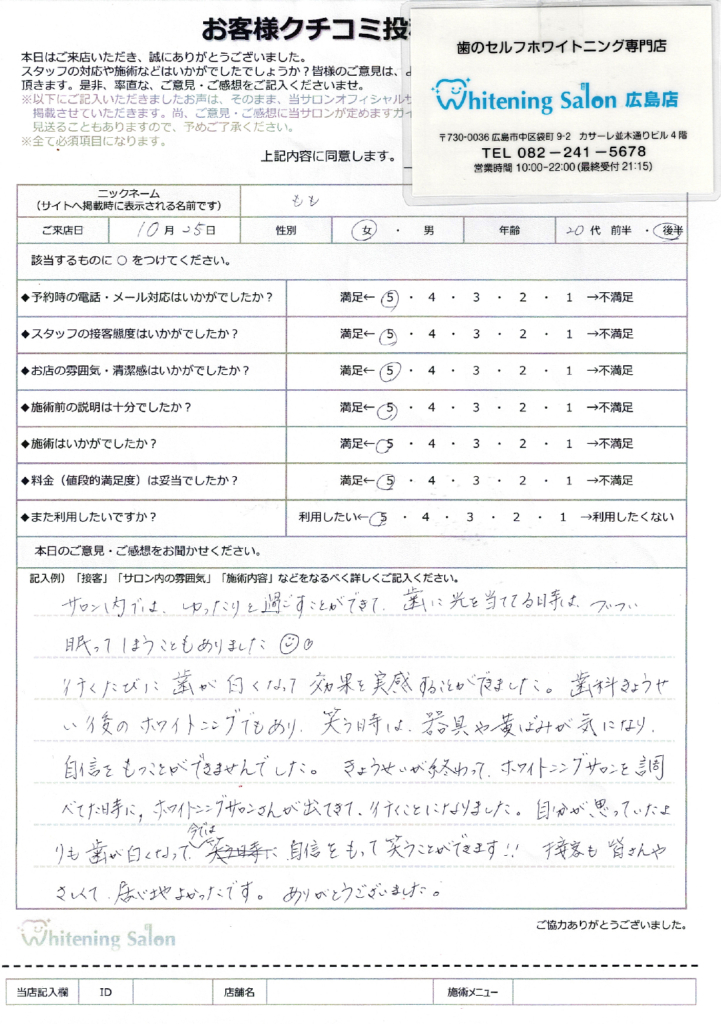 お客様クチコミ投
本日はご来店いただき、誠にありがとうございました。
スタッフの対応や施術などはいかがでしたでしょうか？皆様のご意見は、よ
頂きます。是非、率直な、ご意見・ご感想をご記入くださいませ。
※以下にご記入いただきましたお声は、そのまま、当サロンオフィシャルサ
掲載させていただきます。尚、ご意見・ご感想に当サロンが定めますガイ
見送ることもありますので、予めご了承ください。
※全て必須項目になります。
上記内容に同意します。
歯のセルフホワイトニング専門店
Whitening Salon 広島店
〒730-0036 広島市中区袋町 9-2 カサーレ並木通りビル 4 階
TEL 082-241-5678
営業時間 10:00-22:00 (最終受付 21:15)
ニックネーム
（サイトへ掲載時に表示される名前です）
もも
ご来店日 10月25日 性別 女 ・ 男 年齢 20代 前半 ・ 後半
該当するものに ○ をつけてください。
◆予約時の電話・メール対応はいかがでしたか？ 満足← 5 ・ 4 ・ 3 ・ 2 ・ 1 →不満足
◆スタッフの接客態度はいかがでしたか？ 満足← 5 ・ 4 ・ 3 ・ 2 ・ 1 →不満足
◆お店の雰囲気・清潔感はいかがでしたか？ 満足← 5 ・ 4 ・ 3 ・ 2 ・ 1 →不満足
◆施術前の説明は十分でしたか？ 満足← 5 ・ 4 ・ 3 ・ 2 ・ 1 →不満足
◆施術はいかがでしたか？ 満足← 5 ・ 4 ・ 3 ・ 2 ・ 1 →不満足
◆料金（値段的満足度）は妥当でしたか？ 満足← 5 ・ 4 ・ 3 ・ 2 ・ 1 →不満足
◆また利用したいですか？ 利用したい← 5 ・ 4 ・ 3 ・ 2 ・ 1 →利用したくない
本日のご意見・ご感想をお聞かせください。
記入例）「接客」「サロン内の雰囲気」「施術内容」などをなるべく詳しくご記入ください。
サロン内では、ゆったりと過ごすことができて、歯に光を当ててる時は、ついつい
眠ってしまうこともありました
行くたびに歯が白くなって効果を実感することができました。歯科きょうせ
い後のホワイトニングでもあり、笑う時は、器具や黄ばみが気になり、
自信をもつことができませんでした。きょうせいが終わって、ホワイトニングサロンを調
べてた時に、ホワイトニングサロンさんが出てきて、行くことになりました。自分が思っていたよ
りも歯が白くなって、今では自信をもって笑うことができます!! 接客も皆さんや
さしくて、居心地よかったです。ありがとうございました。
ご協力ありがとうございました。
Whitening Salon
当店記入欄 ID 店舗名 施術メニュー